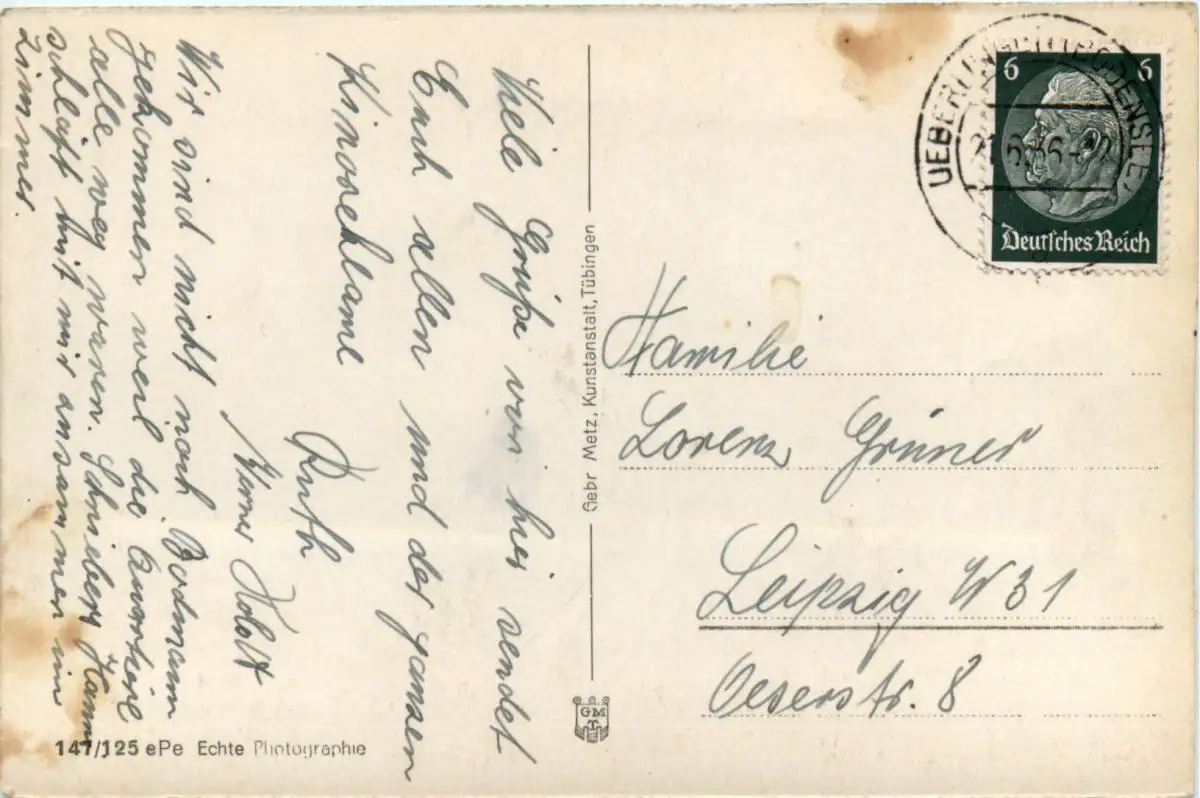 Viele Grüße von hier sendet
Euch allen und der ganzen
Ruth
Werner
Wir sind nicht nach Bodmann
gekommen weil die
alle weg waren. Hanni
schläft mit mir zusammen im
Zimmer.
147/125 ePe Echte Photographie
Gebr Metz, Kunstanstalt, Tübingen
GM
T.
UEBERLINGEN (BODENSEE)
6 6
Deutsches Reich
Familie
Lorenz Grüner
Leipzig W 31
Oeserstr. 8